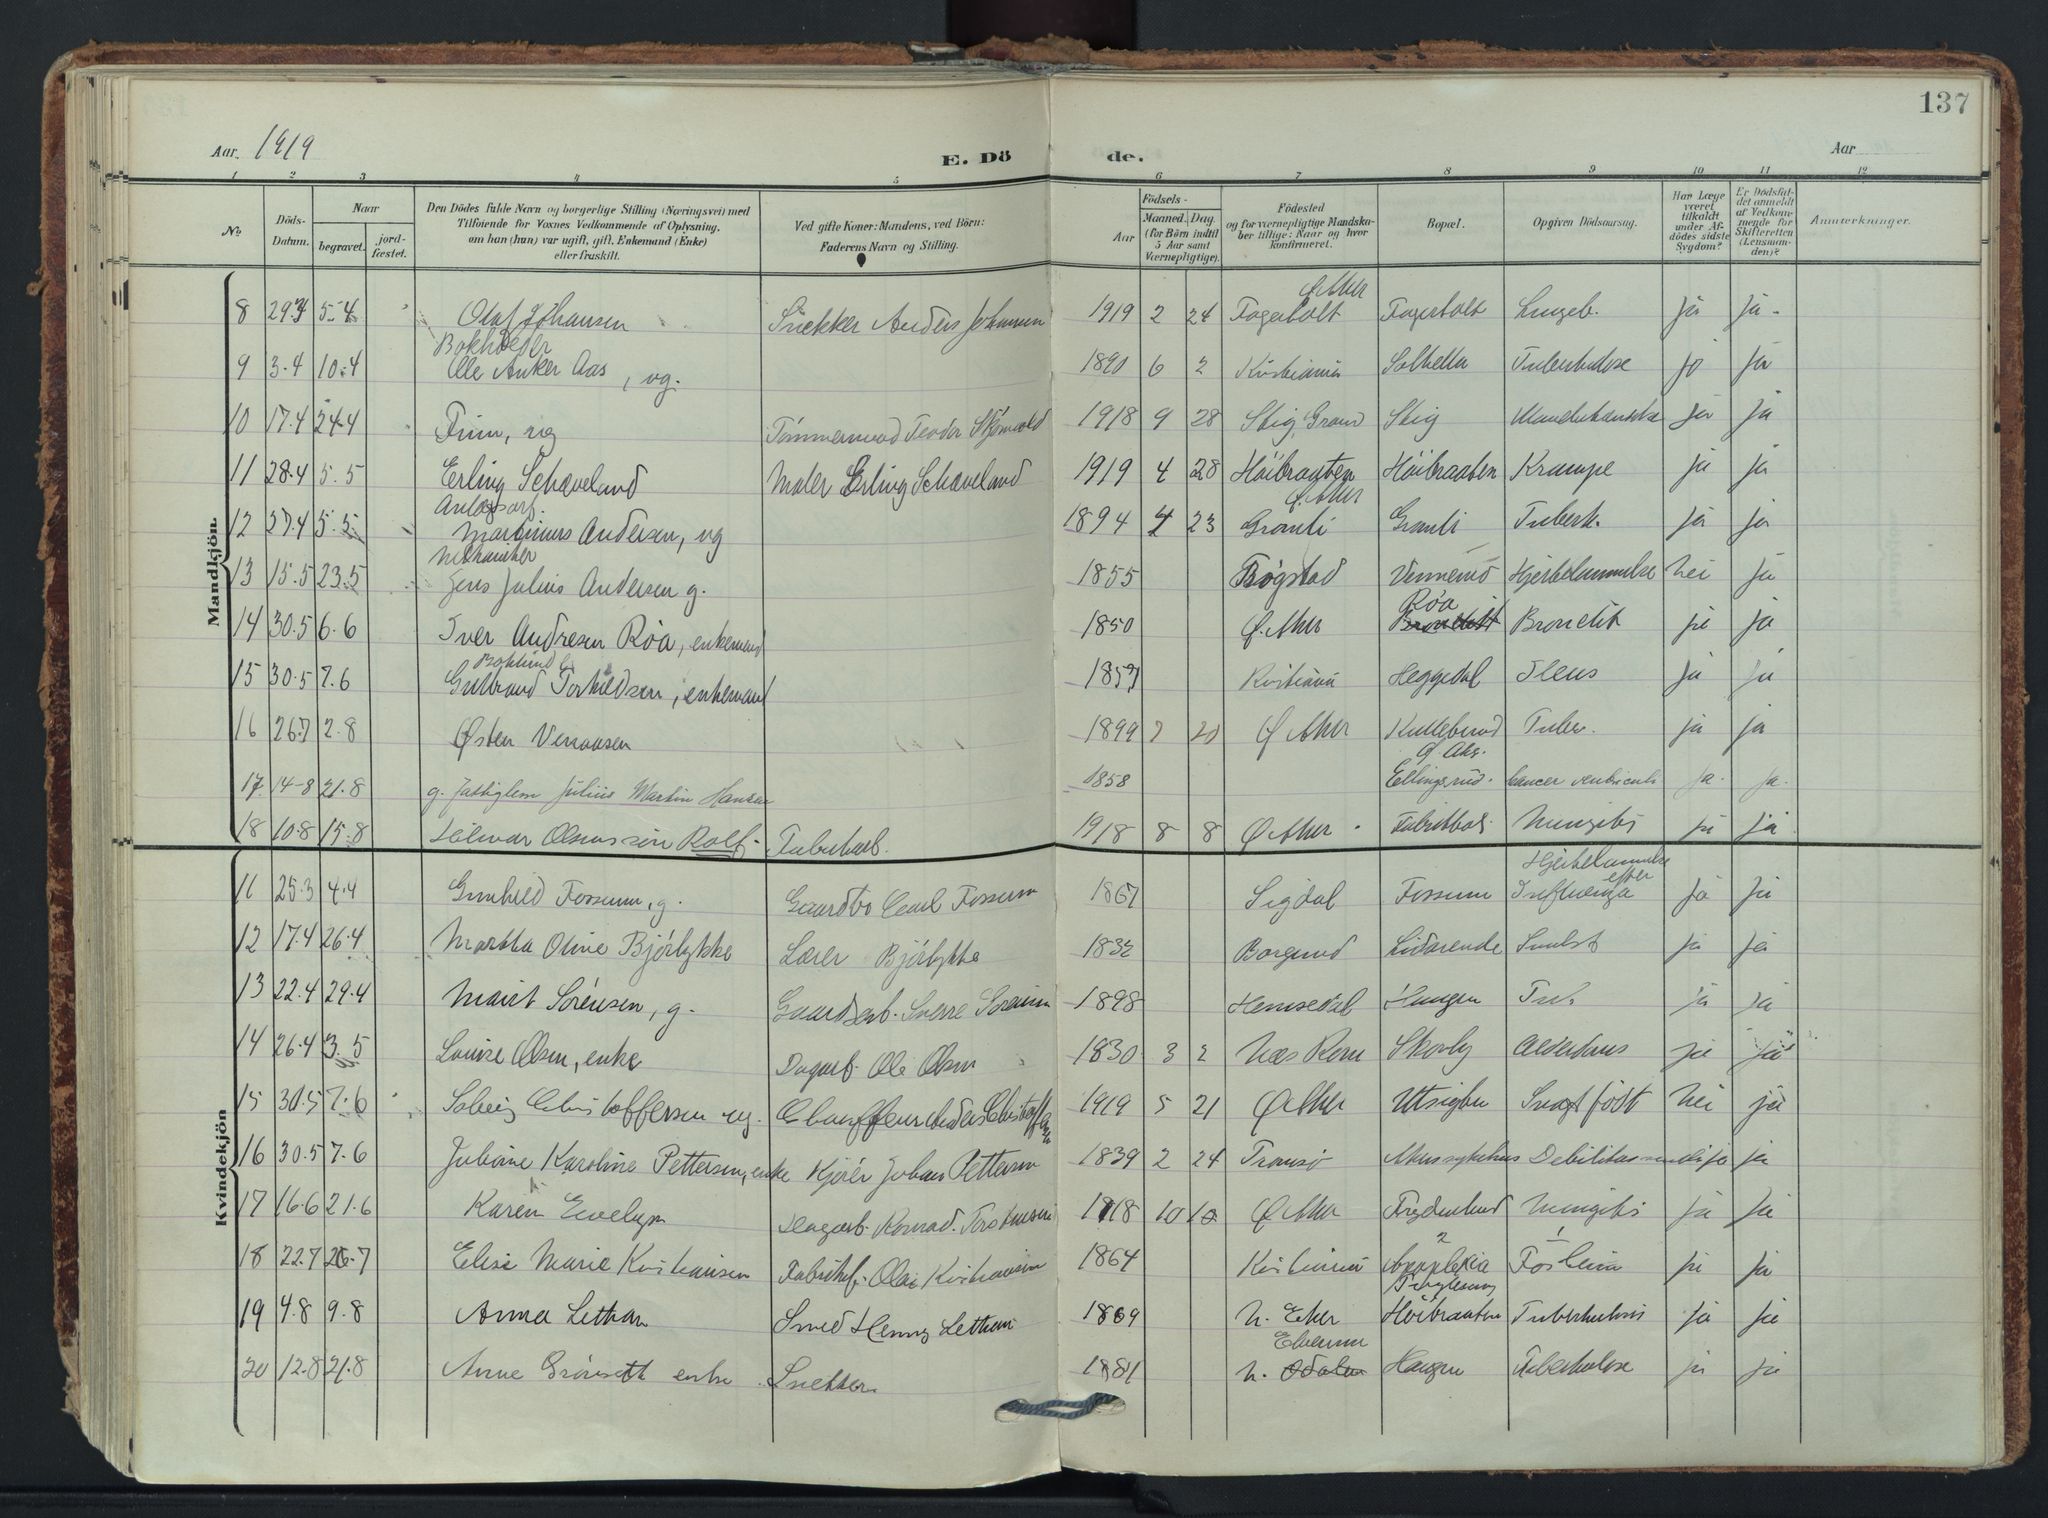 137
Aar. 1919
E. Dö de.
Aar
1 2 3 4 5 6 7 8 9 10 11 12
No
Döds-Datum.
Naar
begravet.
jord-fæstet.
Den Dödes fulde Navn og borgerlige Stilling (Næringsvei) med
Tilföiende for Voxnes Vedkommende af Oplysning,
om han (hun) var ugift, gift, Enkemand (Enke)
eller fraskilt.
Ved gifte Koner: Mandens, ved Börn:
Faderens Navn og Stilling.
Födsels-
Aar
Maaned. Dag.
(for Börn indtil
5 Aar samt
Værnepligtige).
Födested
og for værnepligtige Mandska-
ber tillige: Naar og hvor
konfirmeret.
Bopæl.
Opgiven Dödsaarsag.
Har Læge
været
tilkaldt
under Af-
dödes sidste
Sygdom?
Er Dödsfal-
det anmeldt
af Vedkom-
mende for
Skifteretten
(Lensman-
den)?
Anmærkninger.
Mandkjön.
8 29.3 5-4 Olaf Johansen Snekker Anders Johansen 1919 2 24 Ø. Aker Fagerholt Fagerholt Lungeb. ja ja
Bokholder
9 3.4 10.4 Ole Anker Aas, ug. 1890 6 2 Kristiania Solhella Tuberkulose ja ja
10 17.4 24.4 Finn, ug Tömmermand Teodor 1918 9 28 Stig, Grorud Stig ja ja
11 28.4 5.5 Erling Schaveland Maler Erling Schaveland 1919 4 28 Höibraaten Höibraaten Krampe ja ja
Anlægsarb.
12 27.4 5.5 Martinius Andersen, ug 1894 4 23 Ø. Aker Granli Granli Tuberk. ja ja
Mekaniker
13 15.5 23.5 Jens Julius Andersen g. 1855 Bogstad Hjertelammelse nei ja
14 30.5 6.6 Iver Andresen Røa, enkemand 1850 Ø. Aker Røa Bronchit ja ja
15 30.5 7.6 Gulbrand Torkildsen, enkemand 1857 Kristiania Heggedal Ileus ja ja
16 26.7 2.8 Østen 1899 7 20 Ø Aker Tuber. ja ja
17. 14-8 21.8 g. Julius Martin Hansen 1858 Ø. Aker. Ellingsrud. Cancer ventriculi ja. ja.
18 10.8 15.8 Hilmar Rolf 1918 8 8 Ø Aker ja ja
Kvindekjön
11 25.3 4.4 Gunhild Fossum, g. Gaardbr. Carl Fossum 1867 Sigdal Fossum Hjertelammelse efter Influenza ja ja
12 17.4 26.4 Martha Oline Björlykke Lærer Björlykke 1832 Borgund Lidarende ja ja
13 22.4 29.4 Marit Sörensen, g. Gaardsarb. Sverre Sörensen 1898 Hemsedal Haugen Tub. ja ja
14 26.4 3.5 Louise Olsen, enke Dagarb. Ole Olsen 1830 3 2 Skovly Alderdoms ja ja
15 30.5 7.6 Solveig Christoffersen ug. Chauffeur Anders Christoffersen 1919 5 21 Ø Aker Utsigten Svagt född nei ja
16 30.5 7.6 Juliane Karoline Pettersen, enke Kjörer Johan Pettersen 1839 2 24 Tromsö Akers sykehus Debilitas senilis ja ja
17 16.6 21.6 Karen Evelyn Dagarb. Konrad Torstensen 1918 10 10 Ø Aker Frydenlund Meningitis ja ja
18 22.7 26.7 Elise Marie Kristiansen Fabrikarb. Olai Kristiansen 1864 Kristiania 2 Apoplexia 1 Fosheim ja ja
19 4.8 9.8 Anna Lethan Smed Henry Lethan 1869 N. Eker Höibraaten Tuberkulosis ja ja
20 12.8 21.8 Anne Grönseth enke Snekker 1881 Elverum N. Odalen Haugen Tuberkulose ja ja